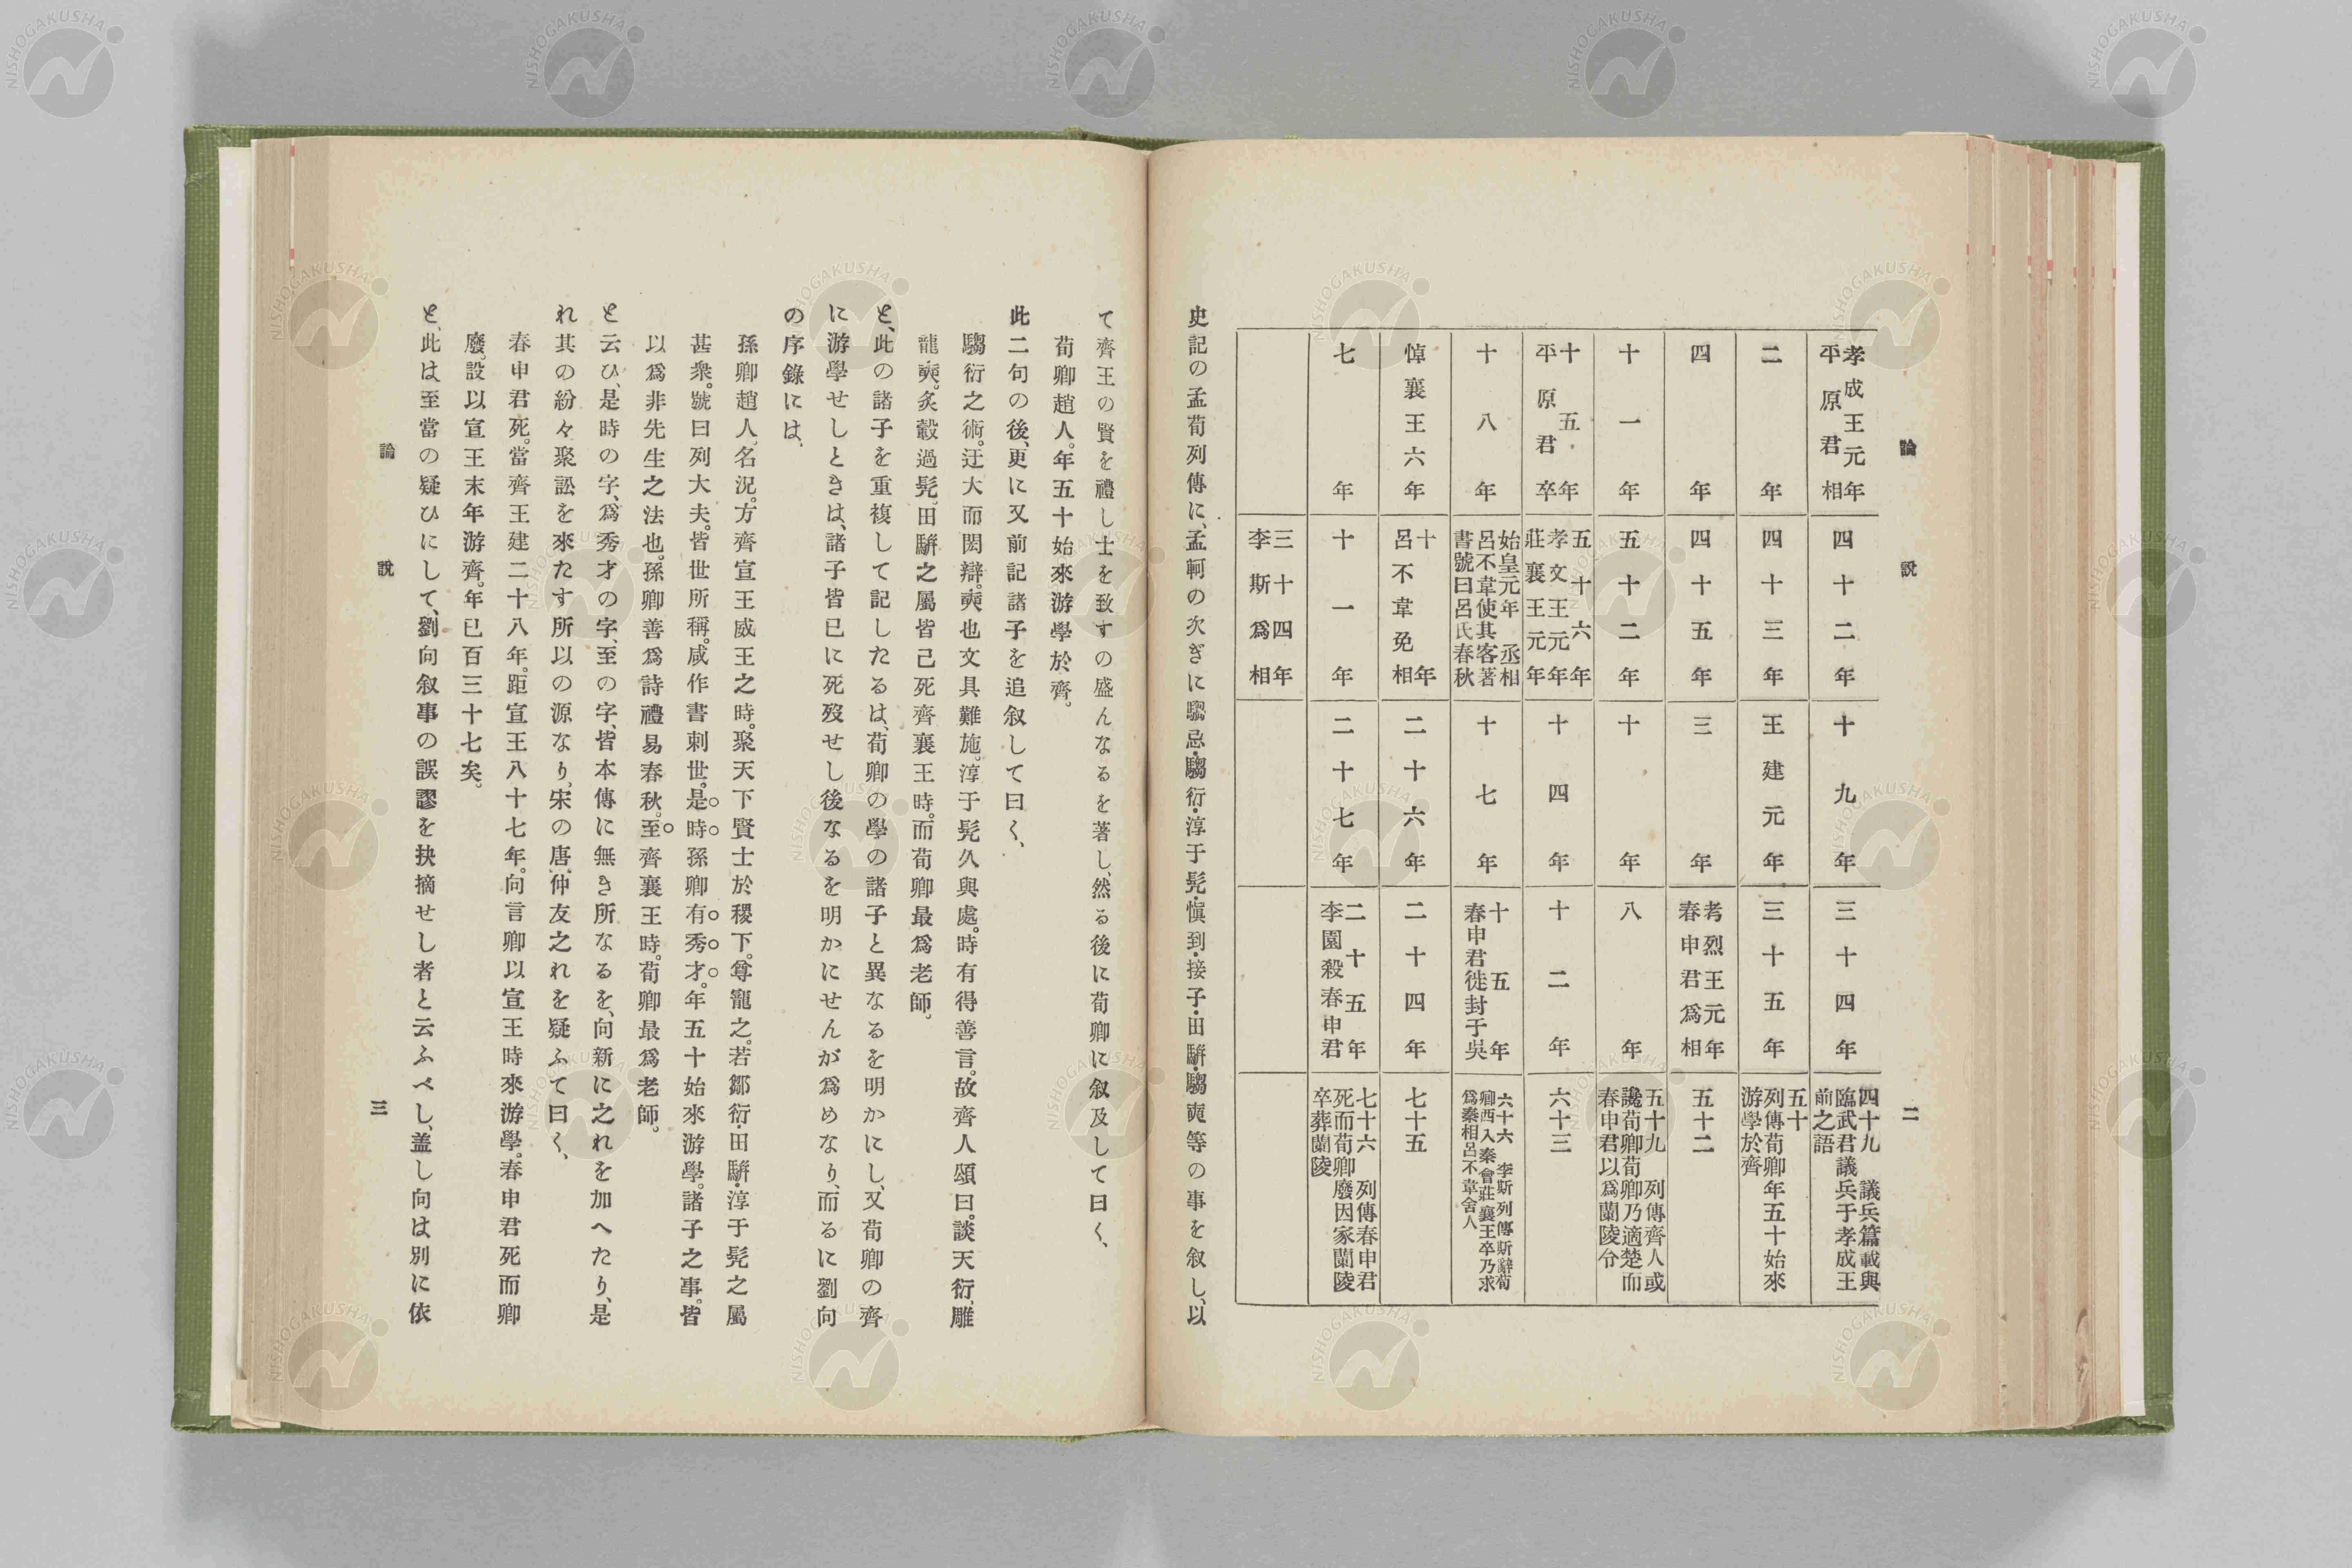 論說
二
孝成王元年
平原君相
四十二年
十九年
三十四年
四十九 議兵篇載與
臨武君議兵于孝成王
前之語
二年
四十三年
王建元年
三十五年
五十
列傳荀卿年五十始來
游學於齊
四年
四十五年
三年
考烈王元年
春申君爲相
五十二
十一年
五十二年
十年
八年
五十九 列傳齊人或
讒荀卿荀卿乃適楚而
春申君以爲蘭陵令
十五年
平原君卒
五十六年
孝文王元年
莊襄王元年
十四年
十二年
六十三
十八年
始皇元年 丞相
呂不韋使其客著
書號曰呂氏春秋
十七年
十五年
春申君徙封于吳
六十六 李斯列傳斯辭荀
卿西入秦會莊襄王卒乃求
爲秦相呂不韋舍人
悼襄王六年
十年
呂不韋免相
二十六年
二十四年
七十五
七年
十一年
二十七年
二十五年
李園殺春申君
七十六 列傳春申君
死而荀卿廢因家蘭陵
卒葬蘭陵
三十四年
李斯爲相
史記の孟荀列傳に、孟軻の次ぎに騶忌・騶衍・淳于髡・愼到・接子・田駢・騶奭等の事を叙し、以
て齊王の賢を禮し士を致すの盛んなるを著し、然る後に荀卿に叙及して曰く、
荀卿趙人。年五十始來游學於齊。
此二句の後、更に又前記諸子を追叙して曰く、
騶衍之術。迂大而閎辯。奭也文具難施。淳于髡久與處。時有得善言。故齊人頌曰。談天衍、雕
龍奭。炙轂過髡、田駢之屬皆已死齊襄王時。而荀卿最爲老師。
と、此の諸子を重複して記したるは、荀卿の學の諸子と異なるを明かにし、又荀卿の齊
に游學せしときは、諸子皆已に死歿せし後なるを明かにせんが爲めなり、而るに劉向
の序錄には、
孫卿趙人。名況。方齊宣王威王之時。聚天下賢士於稷下。尊寵之。若鄒衍・田駢・淳于髡之屬
甚衆。號曰列大夫。皆世所稱。咸作書刺世。是時孫卿有秀才。年五十始來游學。諸子之事。皆
以爲非先生之法也。孫卿善爲詩禮易春秋。至齊襄王時。荀卿最爲老師。
と云ひ、是時の字、爲秀才の字、至の字、皆本傳に無き所なるを、向新に之れを加へたり、是
れ其の紛々聚訟を來たす所以の源なり、宋の唐仲友之れを疑ふて曰く、
春申君死。當齊王建二十八年。距宣王八十七年。向言卿以宣王時來游學。春申君死而卿
廢。設以宣王末年游齊。年已百三十七矣。
と、此は至當の疑ひにして、劉向叙事の誤謬を抉摘せし者と云ふべし、盖し向は別に依
論說
三
NISHOGAKUSHA